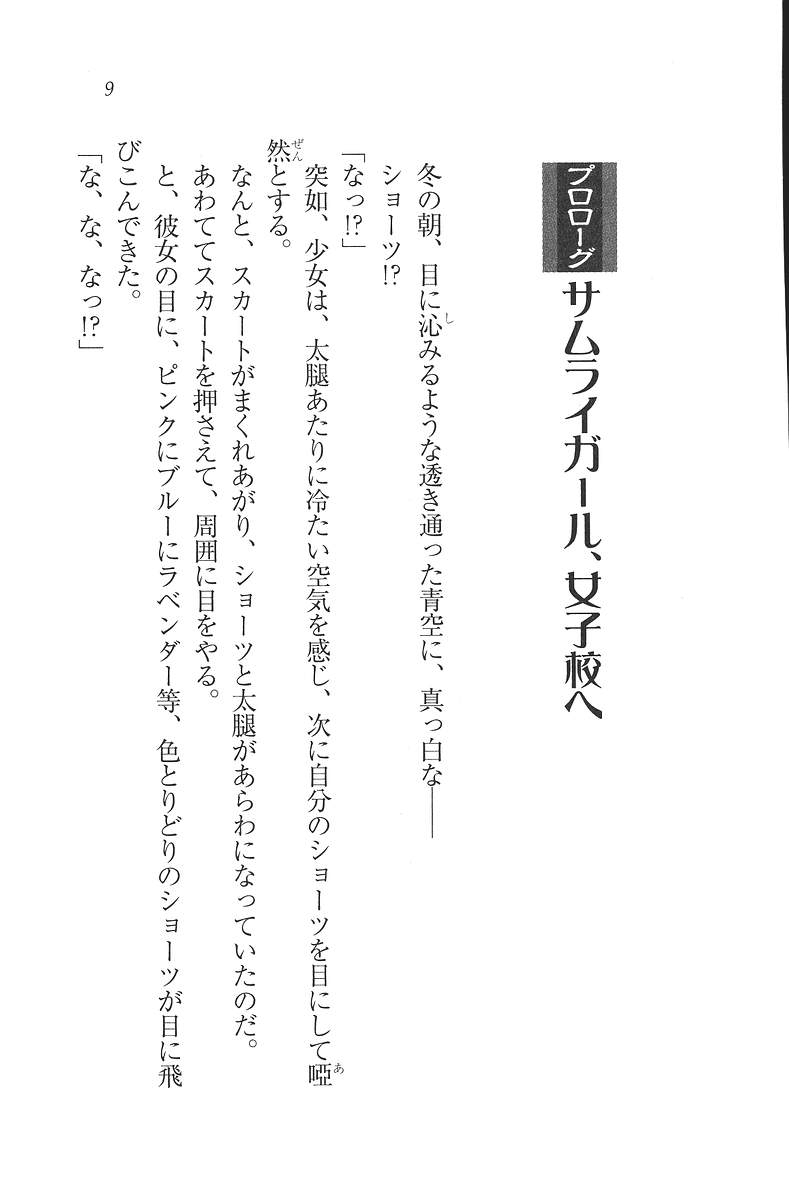 プロローグ サムライガール、女子校へ
冬の朝、目に沁みるような透き通った青空に、真っ白な――
ショーツ!?
「なっ!?」
突如、少女は、太腿あたりに冷たい空気を感じ、次に自分のショーツを目にして啞
然とする。
なんと、スカートがまくれあがり、ショーツと太腿があらわになっていたのだ。
あわててスカートを押さえて、周囲に目をやる。
と、彼女の目に、ピンクにブルーにラベンダー等、色とりどりのショーツが目に飛
びこんできた。
「な、な、なっ!?」
9